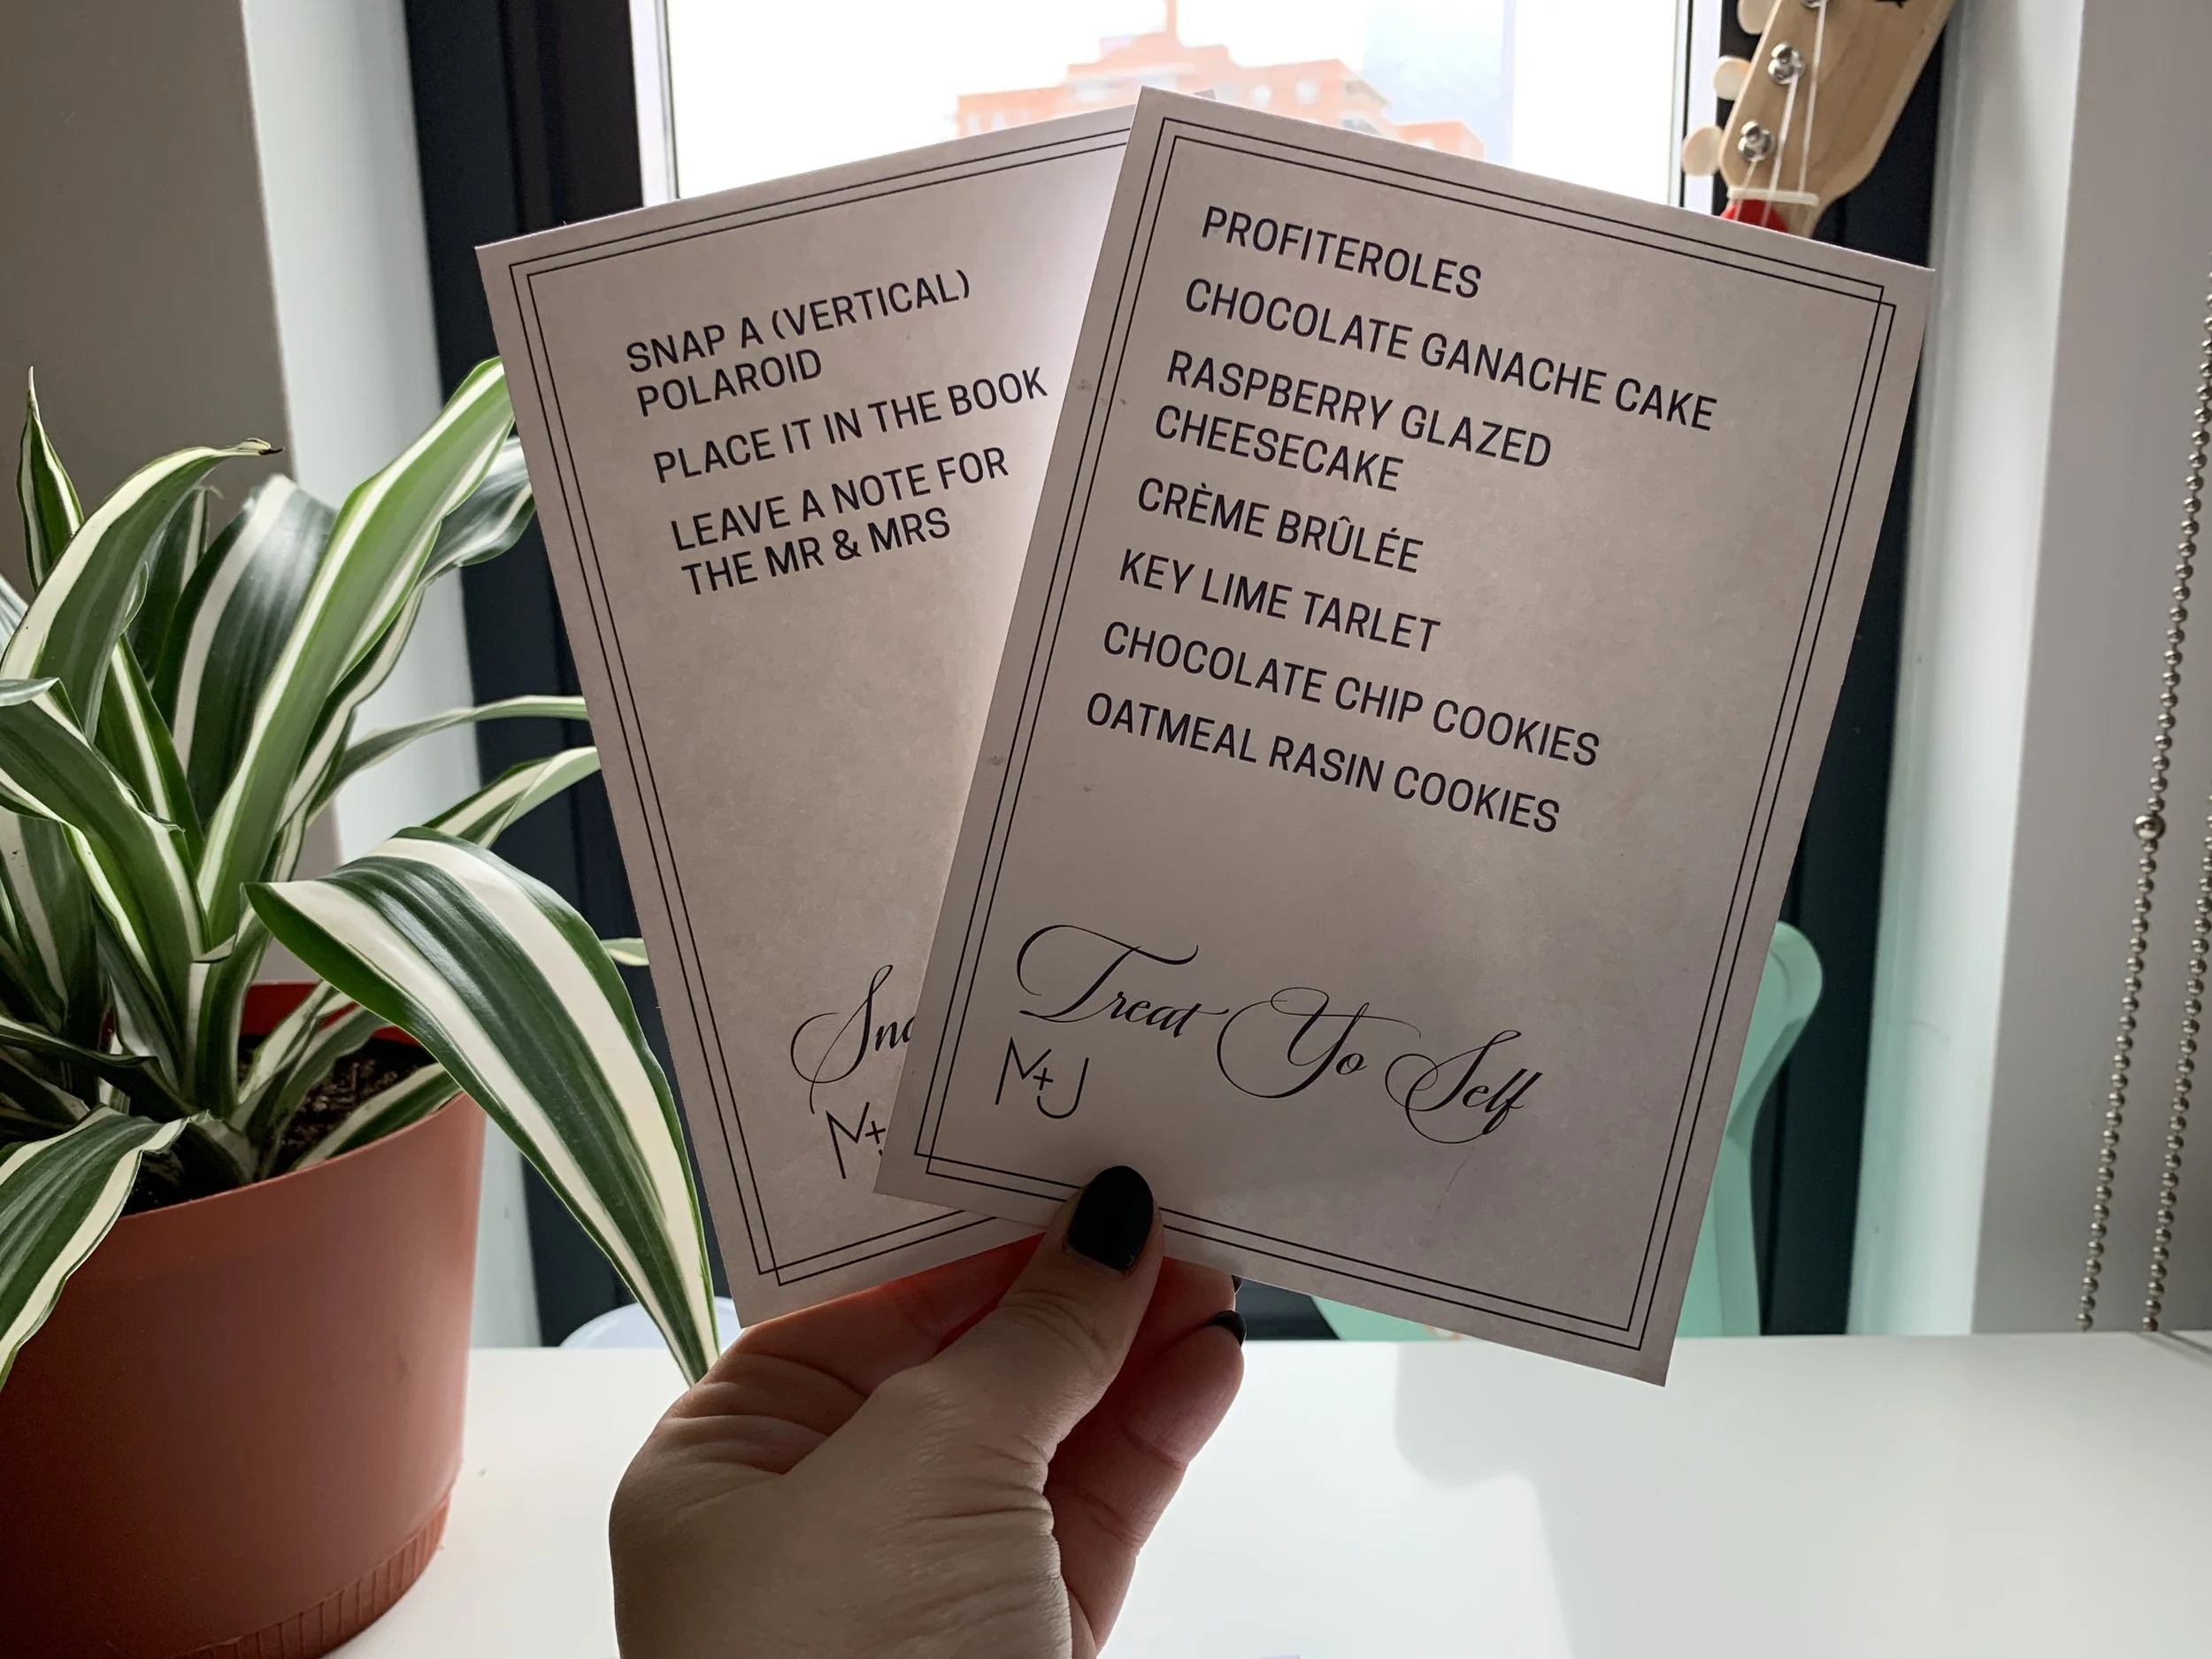 SNAP A (VERTICAL)
POLAROID
PLACE IT IN THE BOOK
LEAVE A NOTE FOR
THE MR & MRS
PROFITEROLES
CHOCOLATE GANACHE CAKE
RASPBERRY GLAZED
CHEESECAKE
CRÈME BRÛLÉE
KEY LIME TARLET
CHOCOLATE CHIP COOKIES
OATMEAL RASIN COOKIES
Treat Yo Self
M+J